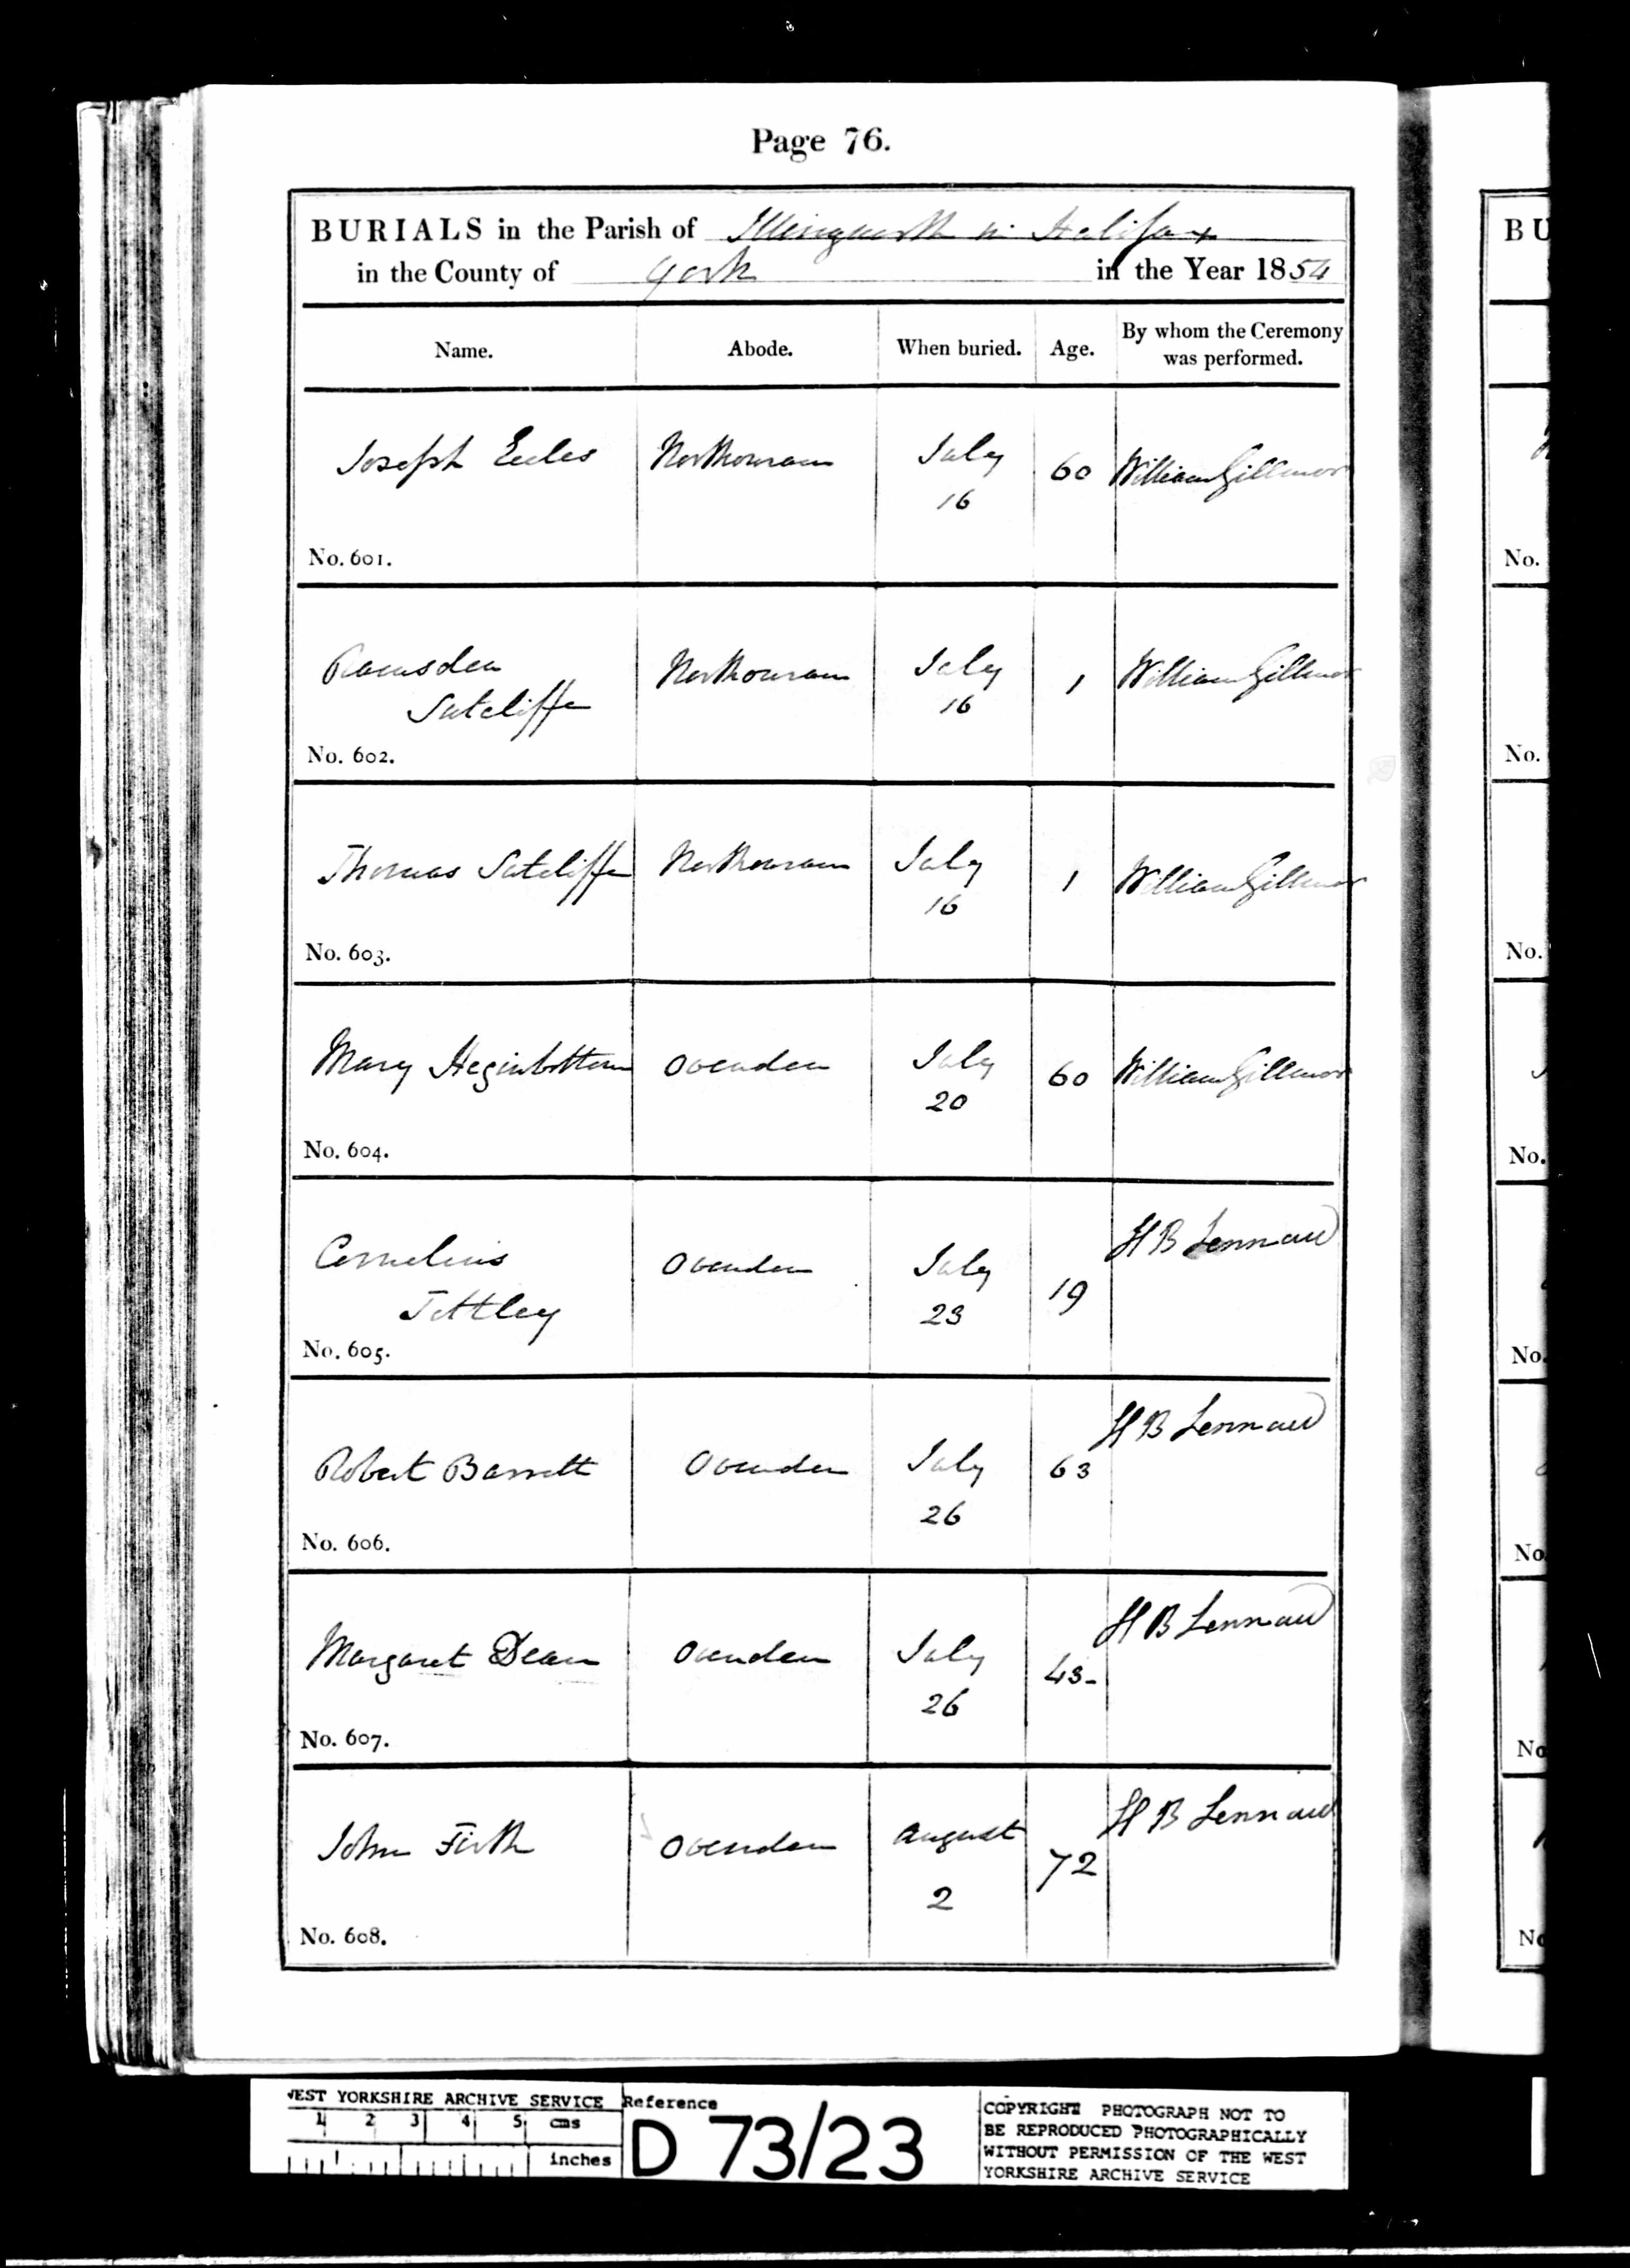 Page 76.
BURIALS in the Parish of Illingworth in Halifax
in the County of York in the Year 1854
Name. Abode. When buried. Age. By whom the Ceremony was performed.
Joseph Eccles Northowram July 16 60 William Gillmor
No. 601.
Ramsden Sutcliffe Northowram July 16 1 William Gillmor
No. 602.
Thomas Sutcliffe Northowram July 16 1 William Gillmor
No. 603.
Mary Heginbottom Ovenden July 20 60 William Gillmor
No. 604.
Cornelius Tettley Ovenden July 23 19 H B Lennard
No. 605.
Robert Barrett Ovenden July 26 63 H B Lennard
No. 606.
Margaret Dean Ovenden July 26 43-
H B Lennard
No. 607.
John Firth Ovenden August 2 72 H B Lennard
No. 608.
BU
No.
No.
No.
No.
No.
No.
No
No
WEST YORKSHIRE ARCHIVE SERVICE
1 2 3 4 5 cms
inches
Reference
D 73/23
COPYRIGHT PHOTOGRAPH NOT TO
BE REPRODUCED PHOTOGRAPHICALLY
WITHOUT PERMISSION OF THE WEST
YORKSHIRE ARCHIVE SERVICE